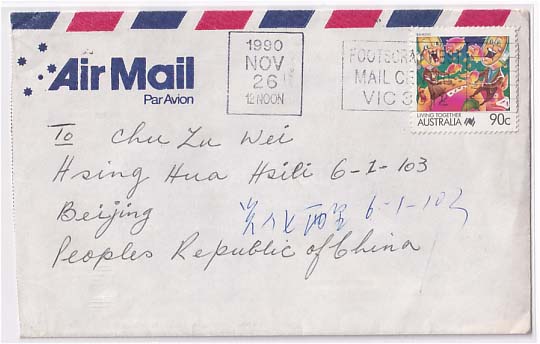 Air Mail
Par Avion
1990
NOV
26
12 NOON
MAIL CE
VIC 3
LIVING TOGETHER
AUSTRALIA 90c
To Chu Zu Wei
Hsing Hua Hsili 6-1-103
Beijing
6-1-103
Peoples Republic of China